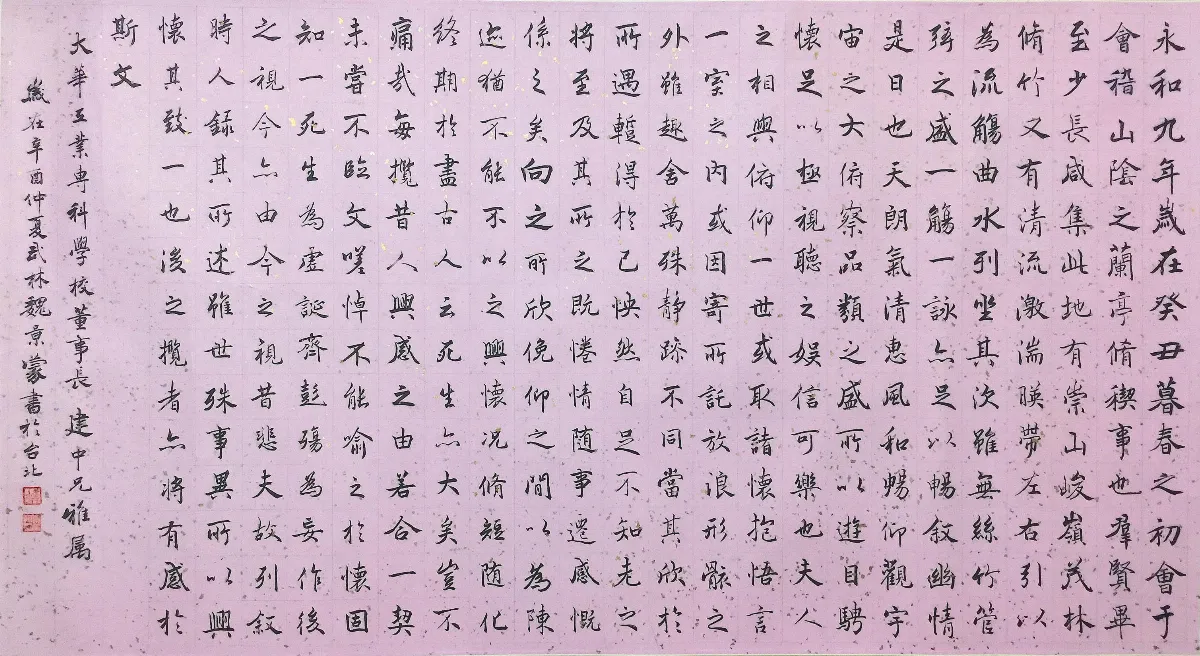 永和九年歲在癸丑暮春之初會于
會稽山陰之蘭亭脩稧事也羣賢畢
至少長咸集此地有崇山峻嶺茂林
脩竹又有清流激湍暎帶左右引以
為流觴曲水列坐其次雖無絲竹管
弦之盛一觴一詠亦足以暢敘幽情
是日也天朗氣清惠風和暢仰觀宇
宙之大俯察品類之盛所以遊目騁
懷足以極視聽之娛信可樂也夫人
之相與俯仰一世或取諸懷抱悟言
一室之內或因寄所託放浪形骸之
外雖趣舍萬殊靜躁不同當其欣於
所遇暫得於己怏然自足不知老之
將至及其所之既惓情隨事遷感慨
係之矣向之所欣俛仰之間以為陳
迹猶不能不以之興懷況脩短隨化
終期於盡古人云死生亦大矣豈不
痛哉每攬昔人興感之由若合一契
未嘗不臨文嗟悼不能喻之於懷固
知一死生為虛誕齊彭殤為妄作後
之視今亦由今之視昔悲夫故列敘
時人錄其所述雖世殊事異所以興
懷其致一也後之攬者亦將有感於
斯文
大華工業專科學校董事長 建中兄雅属
歲在辛酉仲夏武林魏景蒙書於台北